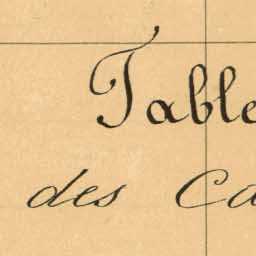 Table
des Ca